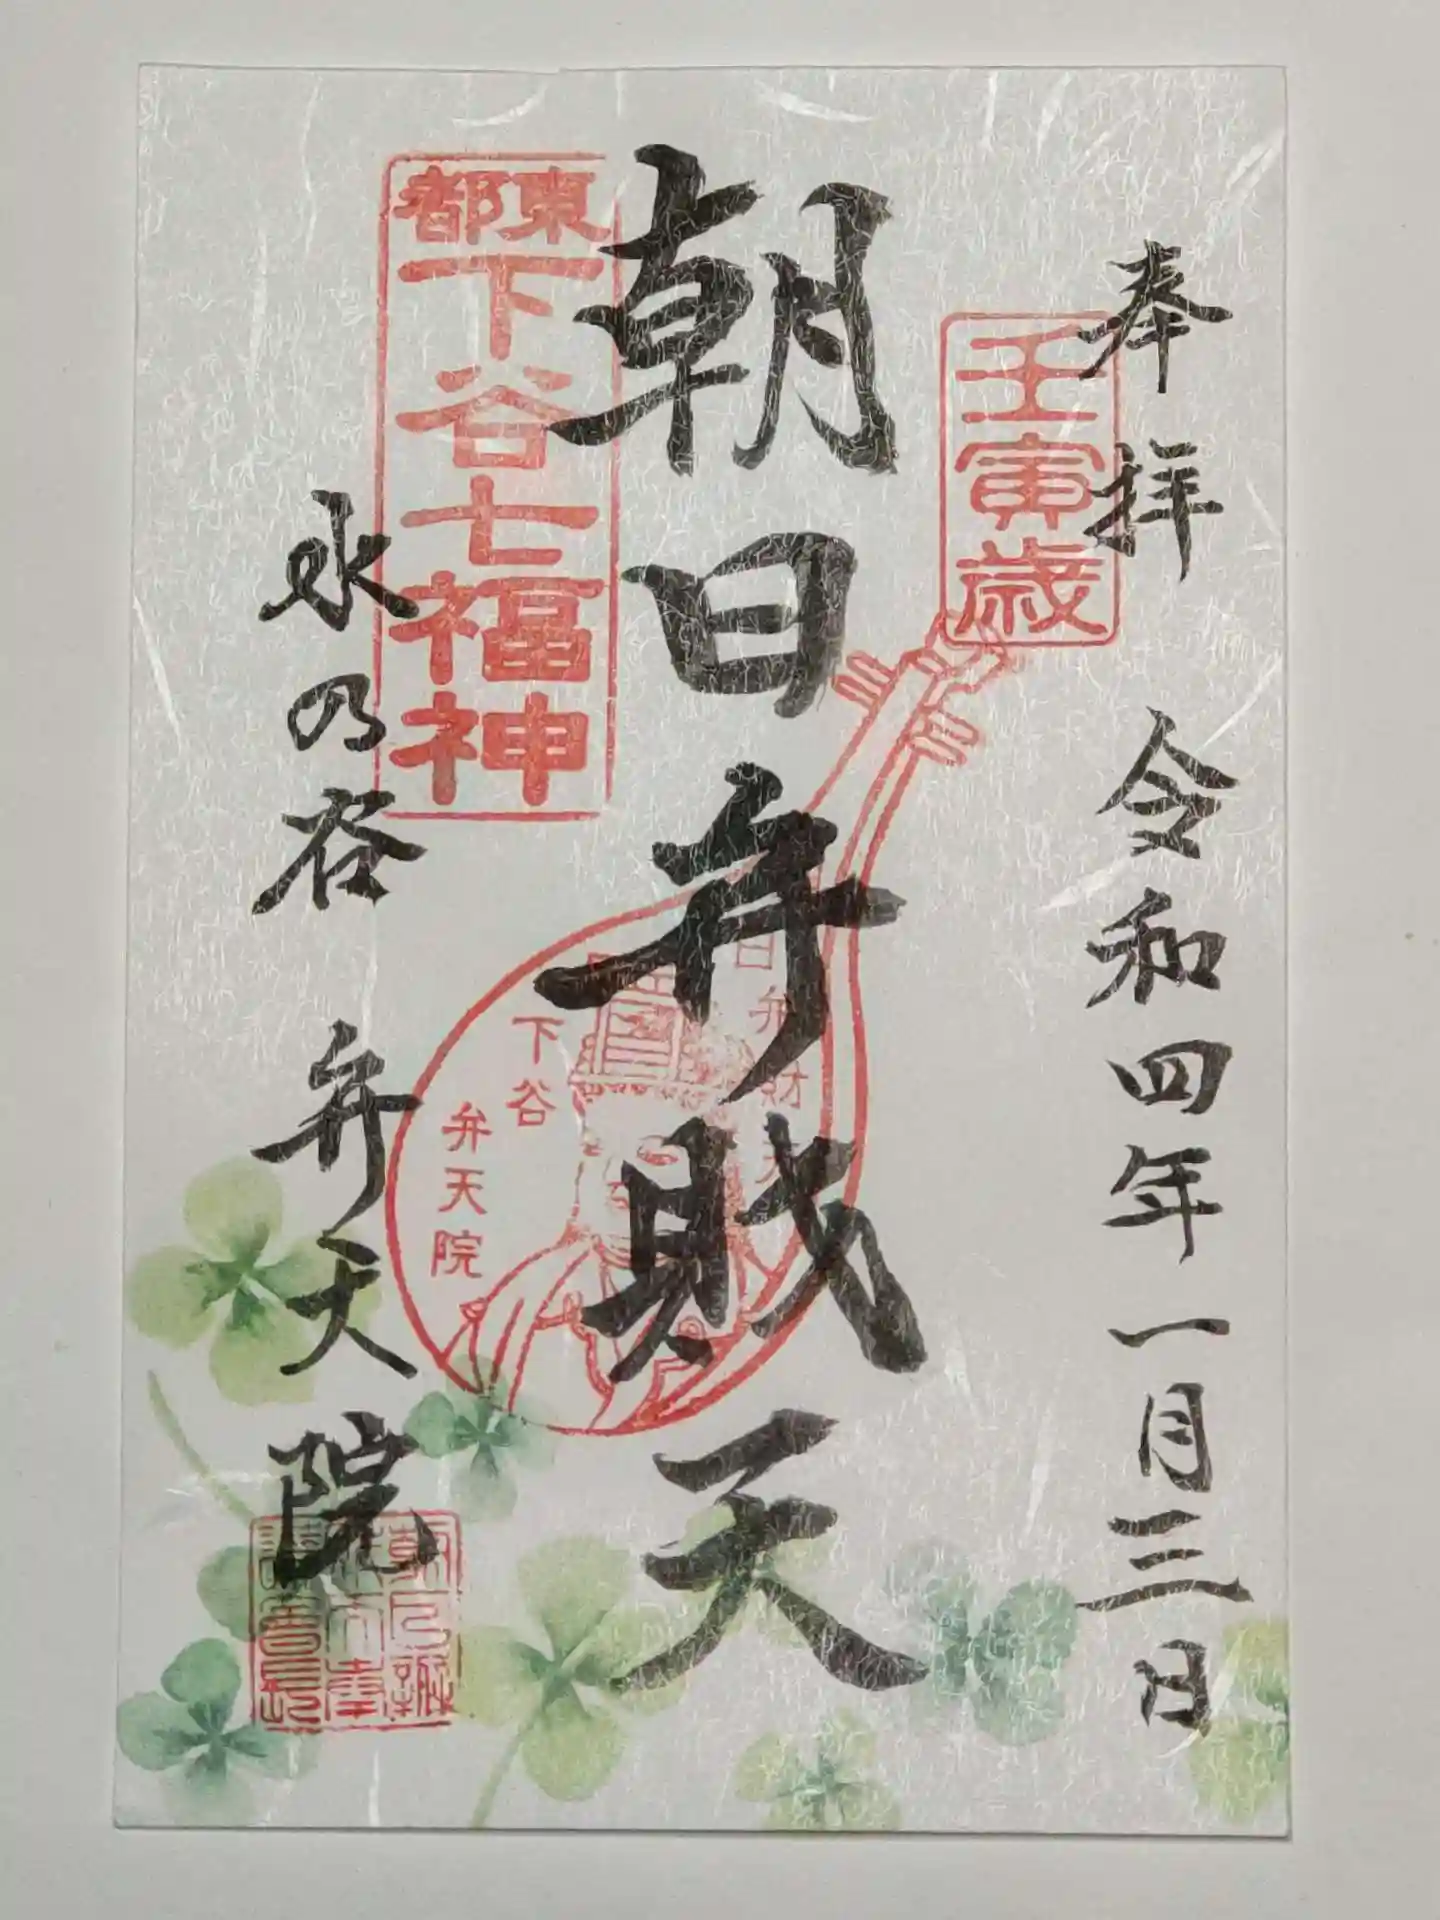 奉拝　令和四年一月三日
壬寅歳
朝日弁財天
東都
下谷七福神
水の谷　弁天院
日弁財天
下谷
弁天院